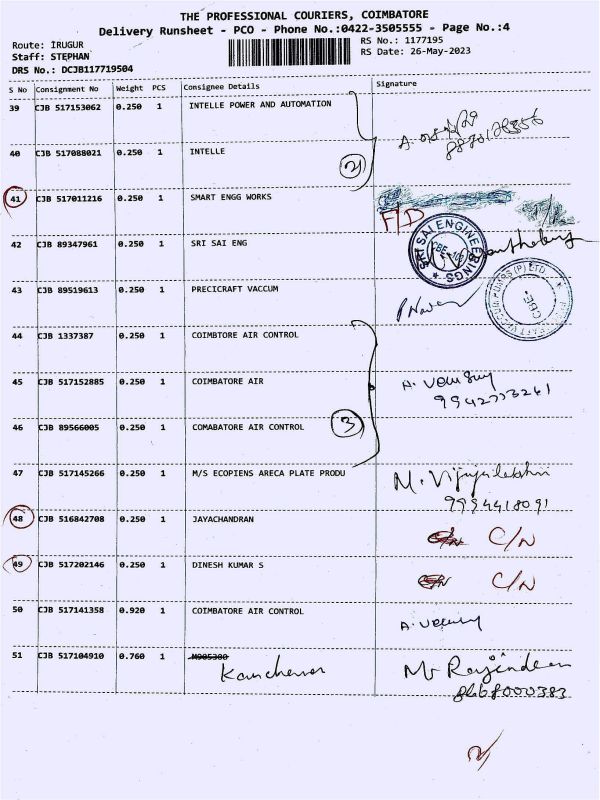 THE PROFESSIONAL COURIERS, COIMBATORE
Delivery Runsheet - PCO - Phone No.:0422-3505555 - Page No.:4
Route: IRUGUR
Staff: STEPHAN
DRS No.: DCJB117719504
RS No.: 1177195
RS Date: 26-May-2023
S No Consignment No Weight PCS Consignee Details Signature
39 CJB 517153062 0.250 1 INTELLE POWER AND AUTOMATION
40 CJB 517088021 0.250 1 INTELLE
2
41 CJB 517011216 0.250 1 SMART ENGG WORKS F/D
42 CJB 89347961 0.250 1 SRI SAI ENG
SRI SAI ENGINEERINGS
43 CJB 89519613 0.250 1 PRECICRAFT VACCUM
44 CJB 1337387 0.250 1 COIMBTORE AIR CONTROL
45 CJB 517152885 0.250 1 COIMBATORE AIR
46 CJB 89566005 0.250 1 COMABATORE AIR CONTROL
3
47 CJB 517145266 0.250 1 M/S ECOPIENS ARECA PLATE PRODU M. Vijayalakshmi
9994418091
48 CJB 516842708 0.250 1 JAYACHANDRAN C/N C/N
49 CJB 517202146 0.250 1 DINESH KUMAR S C/N C/N
50 CJB 517141358 0.920 1 COIMBATORE AIR CONTROL
51 CJB 517104910 0.760 1 M005300
8668000383